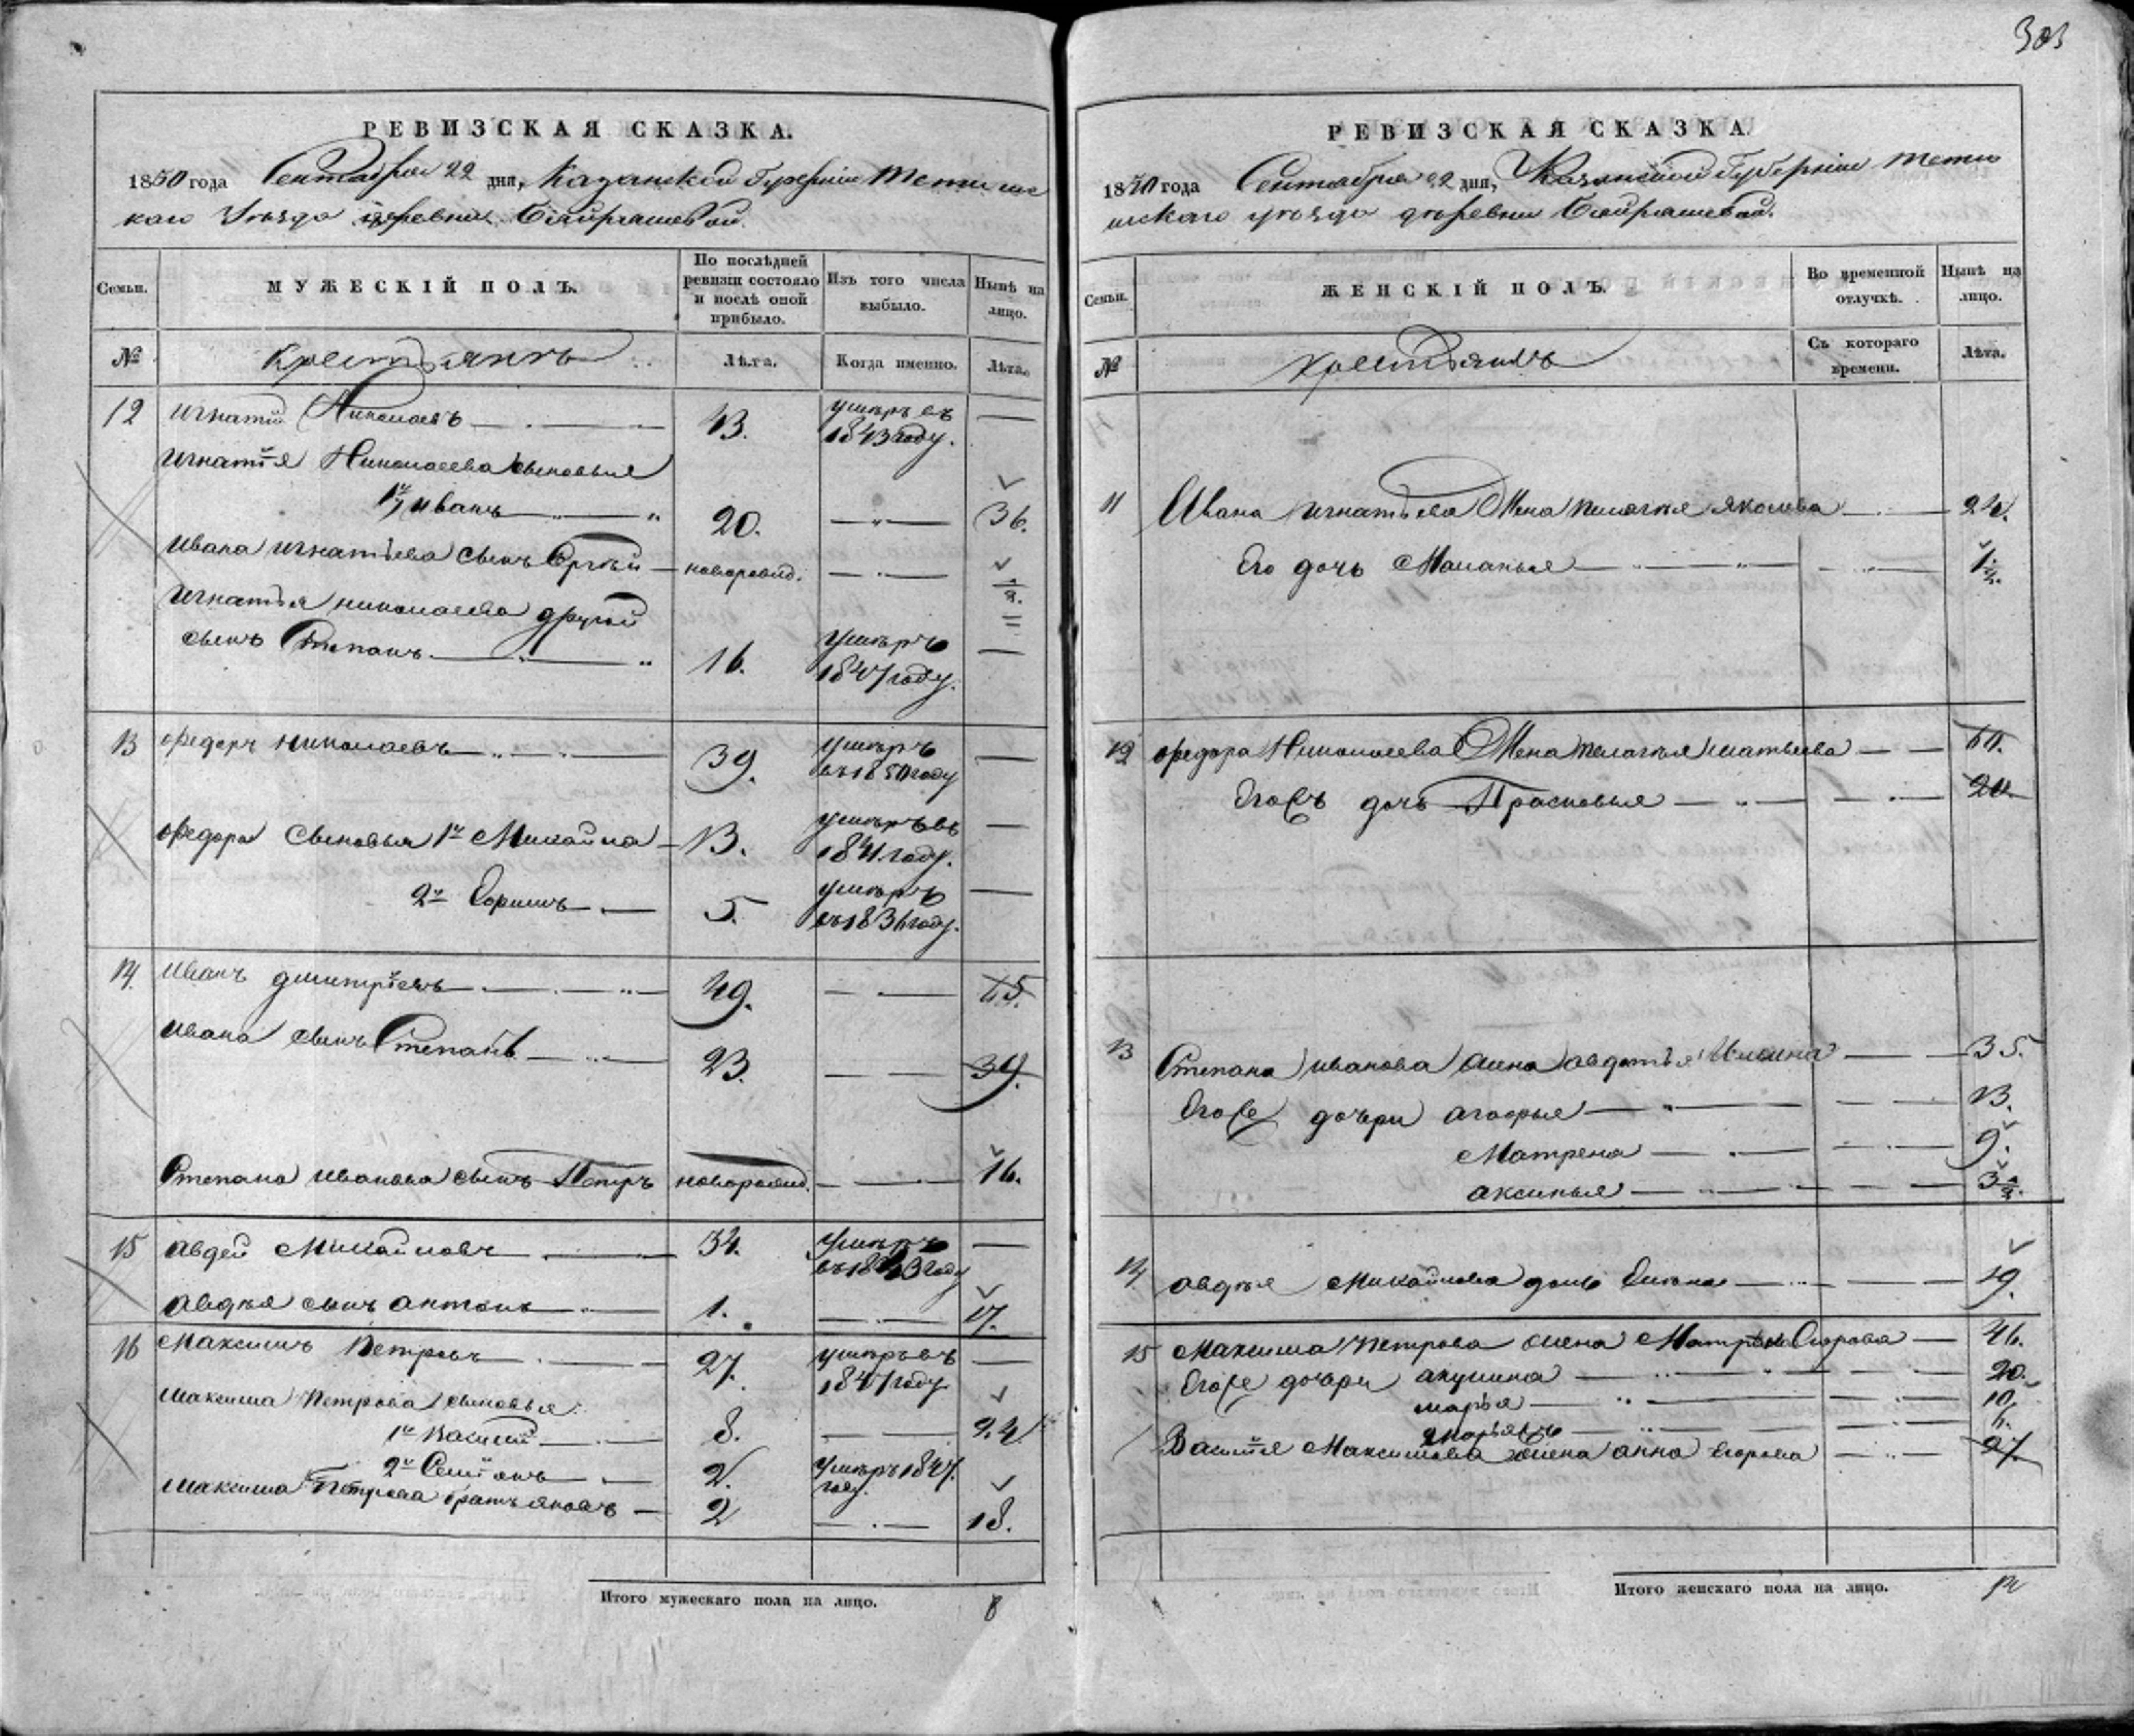 303
РЕВИЗСКАЯ СКАЗКА.
1850 года Сентября 22 дня, Казанской Губернии Тетюшс
каго Уезда деревни Байрашевой.
Семьи.
МУЖЕСКІЙ ПОЛЪ.
По послѣдней ревизіи состояло и послѣ оной прибыло.
Изъ того числа выбыло.
Нынѣ на лицо.
№
крестьянъ
Лѣта.
Когда именно.
Лѣта.
12 Игнатій Николаевъ 43. умеръ въ 1843 году. —
Игнатія Николаева сыновья
1й Иванъ 20. — 36.
Ивана Игнатьева сынъ Сергѣй новорожд. — 1/2.
Игнатья Николаева другой
сынъ Степанъ 16. умеръ 1847 году. —
13 Федоръ Николаевъ 39. умеръ въ 1850 году —
Федора сыновья 1й Михайла 13. умеръ въ 1841 году. —
2й 5. умеръ въ 1836 году. —
14. Иванъ Дмитріевъ 49. — 65.
Ивана сынъ Степанъ 23. — 39.
Степана Иванова сынъ Петръ новорожд. — 16.
15 Авдей Михайловъ 34. умеръ году —
Авдѣя сынъ Антонъ 1. — 17.
16 Максимъ Петровъ 27. умеръ въ 1847 году —
Максима Петрова сыновья
1й Василій 8. — 24
2й Семіонъ 2. умеръ 1847. году.
Максима Петрова братъ Яковъ 2 — 18.
Итого мужескаго пола на лицо. 8
РЕВИЗСКАЯ СКАЗКА.
1850 года Сентября 22 дня, Казанской Губерніи Тетю
шскаго уѣзда деревни Байрашевой.
Семьи.
ЖЕНСКІЙ ПОЛЪ.
Во временной отлучкѣ.
Нынѣ на лицо.
№
крестьянъ
Съ котораго времени.
Лѣта.
11 Ивана Игнатьева жена Пелагея Яковлева — 24.
Его дочь Маланья — 1 1/2.
12 Федора Николаева жена Пелагея Матвеева — 60.
Егож дочь Прасковья — 20.
13 Степана Иванова жена Авдотья Ильина — 35.
Егоже дочери Агафья — 13.
Матрена — 9.
Аксинья — 3 1/2.
14 Авдѣя Михайлова дочь — 19.
15 Максима Петрова жена Матрена Егорова — 46.
Егоже дочери Акулина — 20.
Марья — 10.
6.
Василія Максимова жена Анна Егорова — 27.
Итого женскаго пола на лицо. 14